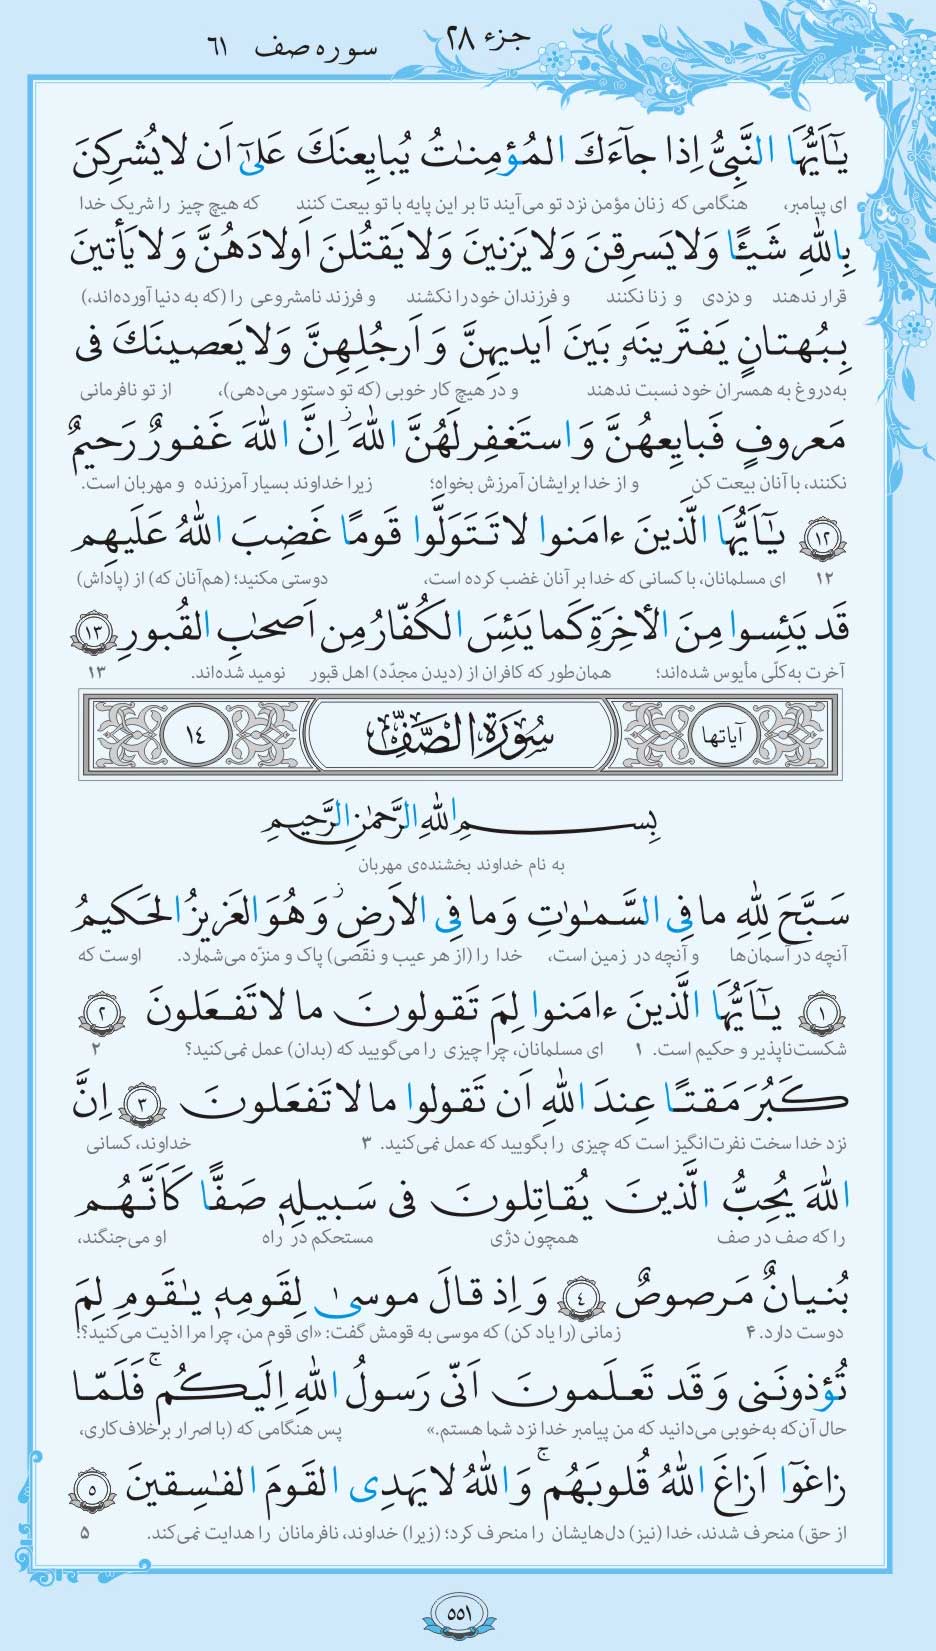 جزء ۲۸
سوره صف ۶۱
يٰٓاَيُّهَا النَّبِىُّ اِذا جآءَكَ المُؤمِنٰتُ يُبايِعنَكَ عَلىٰٓ اَن لا يُشرِكنَ
ای پیامبر، هنگامی که زنان مؤمن نزد تو می‌آیند تا بر این پایه با تو بیعت کنند که هیچ چیز را شریک خدا
بِاللّٰهِ شَيـًٔا وَ لا يَسرِقنَ وَ لا يَزنينَ وَ لا يَقتُلنَ اَولادَهُنَّ وَ لا يَأتينَ
قرار ندهند و دزدی و زنا نکنند و فرزندان خود را نکشند و فرزند نامشروعی را (که به دنیا آورده‌اند،)
بِبُهتانٍ يَفتَرينَهٗ بَينَ اَيديهِنَّ وَ اَرجُلِهِنَّ وَ لا يَعصينَكَ فى
به‌دروغ به همسران خود نسبت ندهند و در هیچ کار خوبی (که تو دستور می‌دهی)، از تو نافرمانی
مَعروفٍ فَبايِعهُنَّ وَ استَغفِر لَهُنَّ اللّٰهَ ۚ اِنَّ اللّٰهَ غَفورٌ رَحيمٌ
نکنند، با آنان بیعت کن و از خدا برایشان آمرزش بخواه؛ زیرا خداوند بسیار آمرزنده و مهربان است.
١٢ يٰٓاَيُّهَا الَّذينَ ءامَنوا لا تَتَوَلَّوا قَومًا غَضِبَ اللّٰهُ عَلَيهِم
۱۲ ای مسلمانان، با کسانی که خدا بر آنان غضب کرده است، دوستی مکنید؛ (هم‌آنان که) از (پاداش)
قَد يَئِسوا مِنَ الأخِرَةِ كَما يَئِسَ الكُفّارُ مِن اَصحٰبِ القُبورِ ١٣
آخرت به‌کلّی مأیوس شده‌اند؛ همان‌طور که کافران از (دیدن مجدّد) اهل قبور نومید شده‌اند. ۱۳
آیاتها سُورَةُ الصَّفِّ ١٤
بِسمِ اللّٰهِ الرَّحمٰنِ الرَّحيمِ
به نام خداوند بخشنده‌ی مهربان
سَبَّحَ لِلّٰهِ ما فِى السَّمٰوٰتِ وَ ما فِى الاَرضِ ۖ وَ هُوَ العَزيزُ الحَكيمُ
آنچه در آسمان‌ها و آنچه در زمین است، خدا را (از هر عیب و نقصی) پاک و منزّه می‌شمارد. اوست که
١ يٰٓاَيُّهَا الَّذينَ ءامَنوا لِمَ تَقولونَ ما لا تَفعَلونَ ٢
شکست‌ناپذیر و حکیم است. ۱ ای مسلمانان، چرا چیزی را می‌گویید که (بدان) عمل نمی‌کنید؟ ۲
كَبُرَ مَقتًا عِندَ اللّٰهِ اَن تَقولوا ما لا تَفعَلونَ ٣ اِنَّ
نزد خدا سخت نفرت‌انگیز است که چیزی را بگویید که عمل نمی‌کنید. ۳ خداوند، کسانی
اللّٰهَ يُحِبُّ الَّذينَ يُقاتِلونَ فى سَبيلِهٖ صَفًّا كَاَنَّهُم
را که صف در صف همچون دژی مستحکم در راه او می‌جنگند،
بُنيانٌ مَرصوصٌ ٤ وَ اِذ قالَ موسىٰ لِقَومِهٖ يٰقَومِ لِمَ
دوست دارد. ۴ زمانی (را یاد کن) که موسی به قومش گفت: «ای قوم من، چرا مرا اذیت می‌کنید؟!
تُؤذونَنى وَ قَد تَعلَمونَ اَنّى رَسولُ اللّٰهِ اِلَيكُم ۚ فَلَمّا
حال آن‌که به‌خوبی می‌دانید که من پیامبر خدا نزد شما هستم.» پس هنگامی که (با اصرار بر خلاف‌کاری،
زاغوٓا اَزاغَ اللّٰهُ قُلوبَهُم ۚ وَ اللّٰهُ لا يَهدِى القَومَ الفٰسِقينَ ٥
از حق) منحرف شدند، خدا (نیز) دل‌هایشان را منحرف کرد؛ (زیرا) خداوند، نافرمانان را هدایت نمی‌کند. ۵
۵۵۱